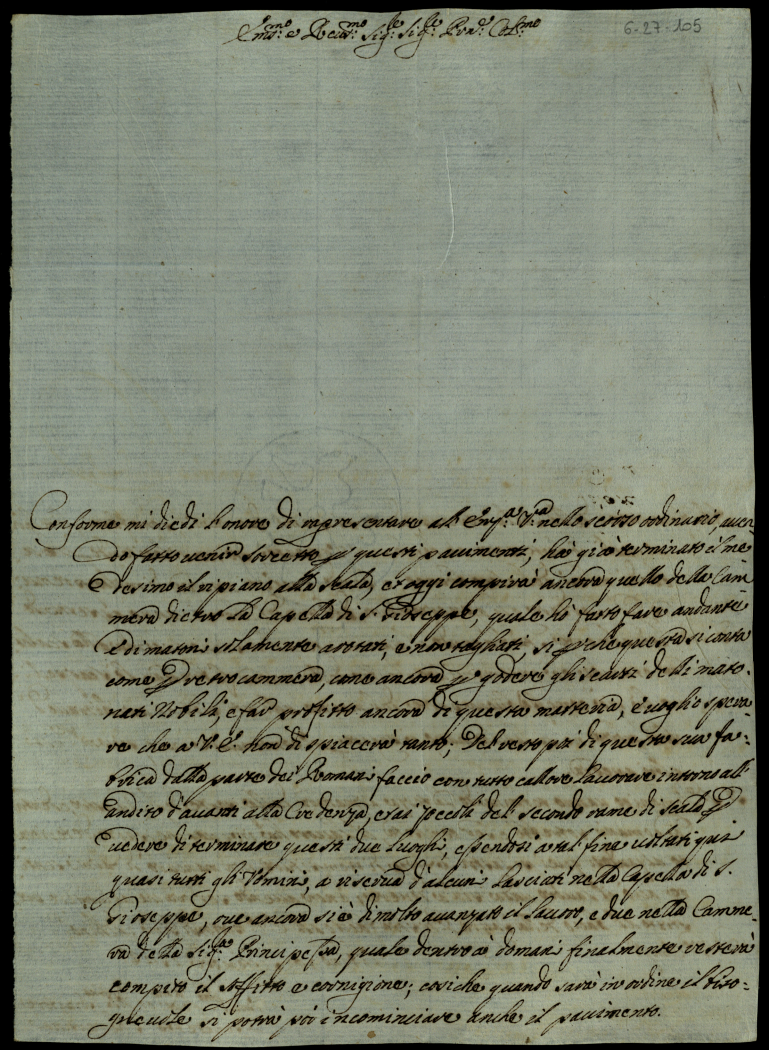 Em.mo e Reu.mo Sig.re Sig.re Pron.e Col.mo
6-27-105
Conforme mi diedi l'onore di rapresentare all'Em.a V.a nello scorso ordinario, auen-
do fatto uenir Storetto p questi pauimenti, hà già terminato il me
desimo il ripiano alla scala, et oggi compirà ancora quello della Cam
mera dietro la Capella di S. Gioseppe, quale hò fatto fare andante
e di matoni solamente arotati, e non tagliati, sì p che questa si conta
come p retrocammera, come ancora p godere gli scarti delli mato-
nati Nobili, e far profitto ancora di questa matteria, e uoglio spera-
re che a V. E. non dispiacerà tanto; Del resto poi di questa sua fa-
brica dalla parte dei Romani faccio con tutto callore lauorare intorno all'
andito d'auanti alla Credenza, et ai zoccoli del secondo rame di scala p
uedere di terminare questi due luoghi, essendosi a tal fine uoltati qui
quasi tutti gli Omini, a riserua d'alcuni lasciati nella Capella di S.
Gioseppe, oue ancora si è di molto auanzato il lauoro, e due nella Camme-
ra della Sig.ra Principessa, quale dentro à domani finalmente resterà
compito il soffitto e cornigione; cosiche quando sarà in ordine il biso-
gneuole si potrà poi incominciare anche il pauimento.